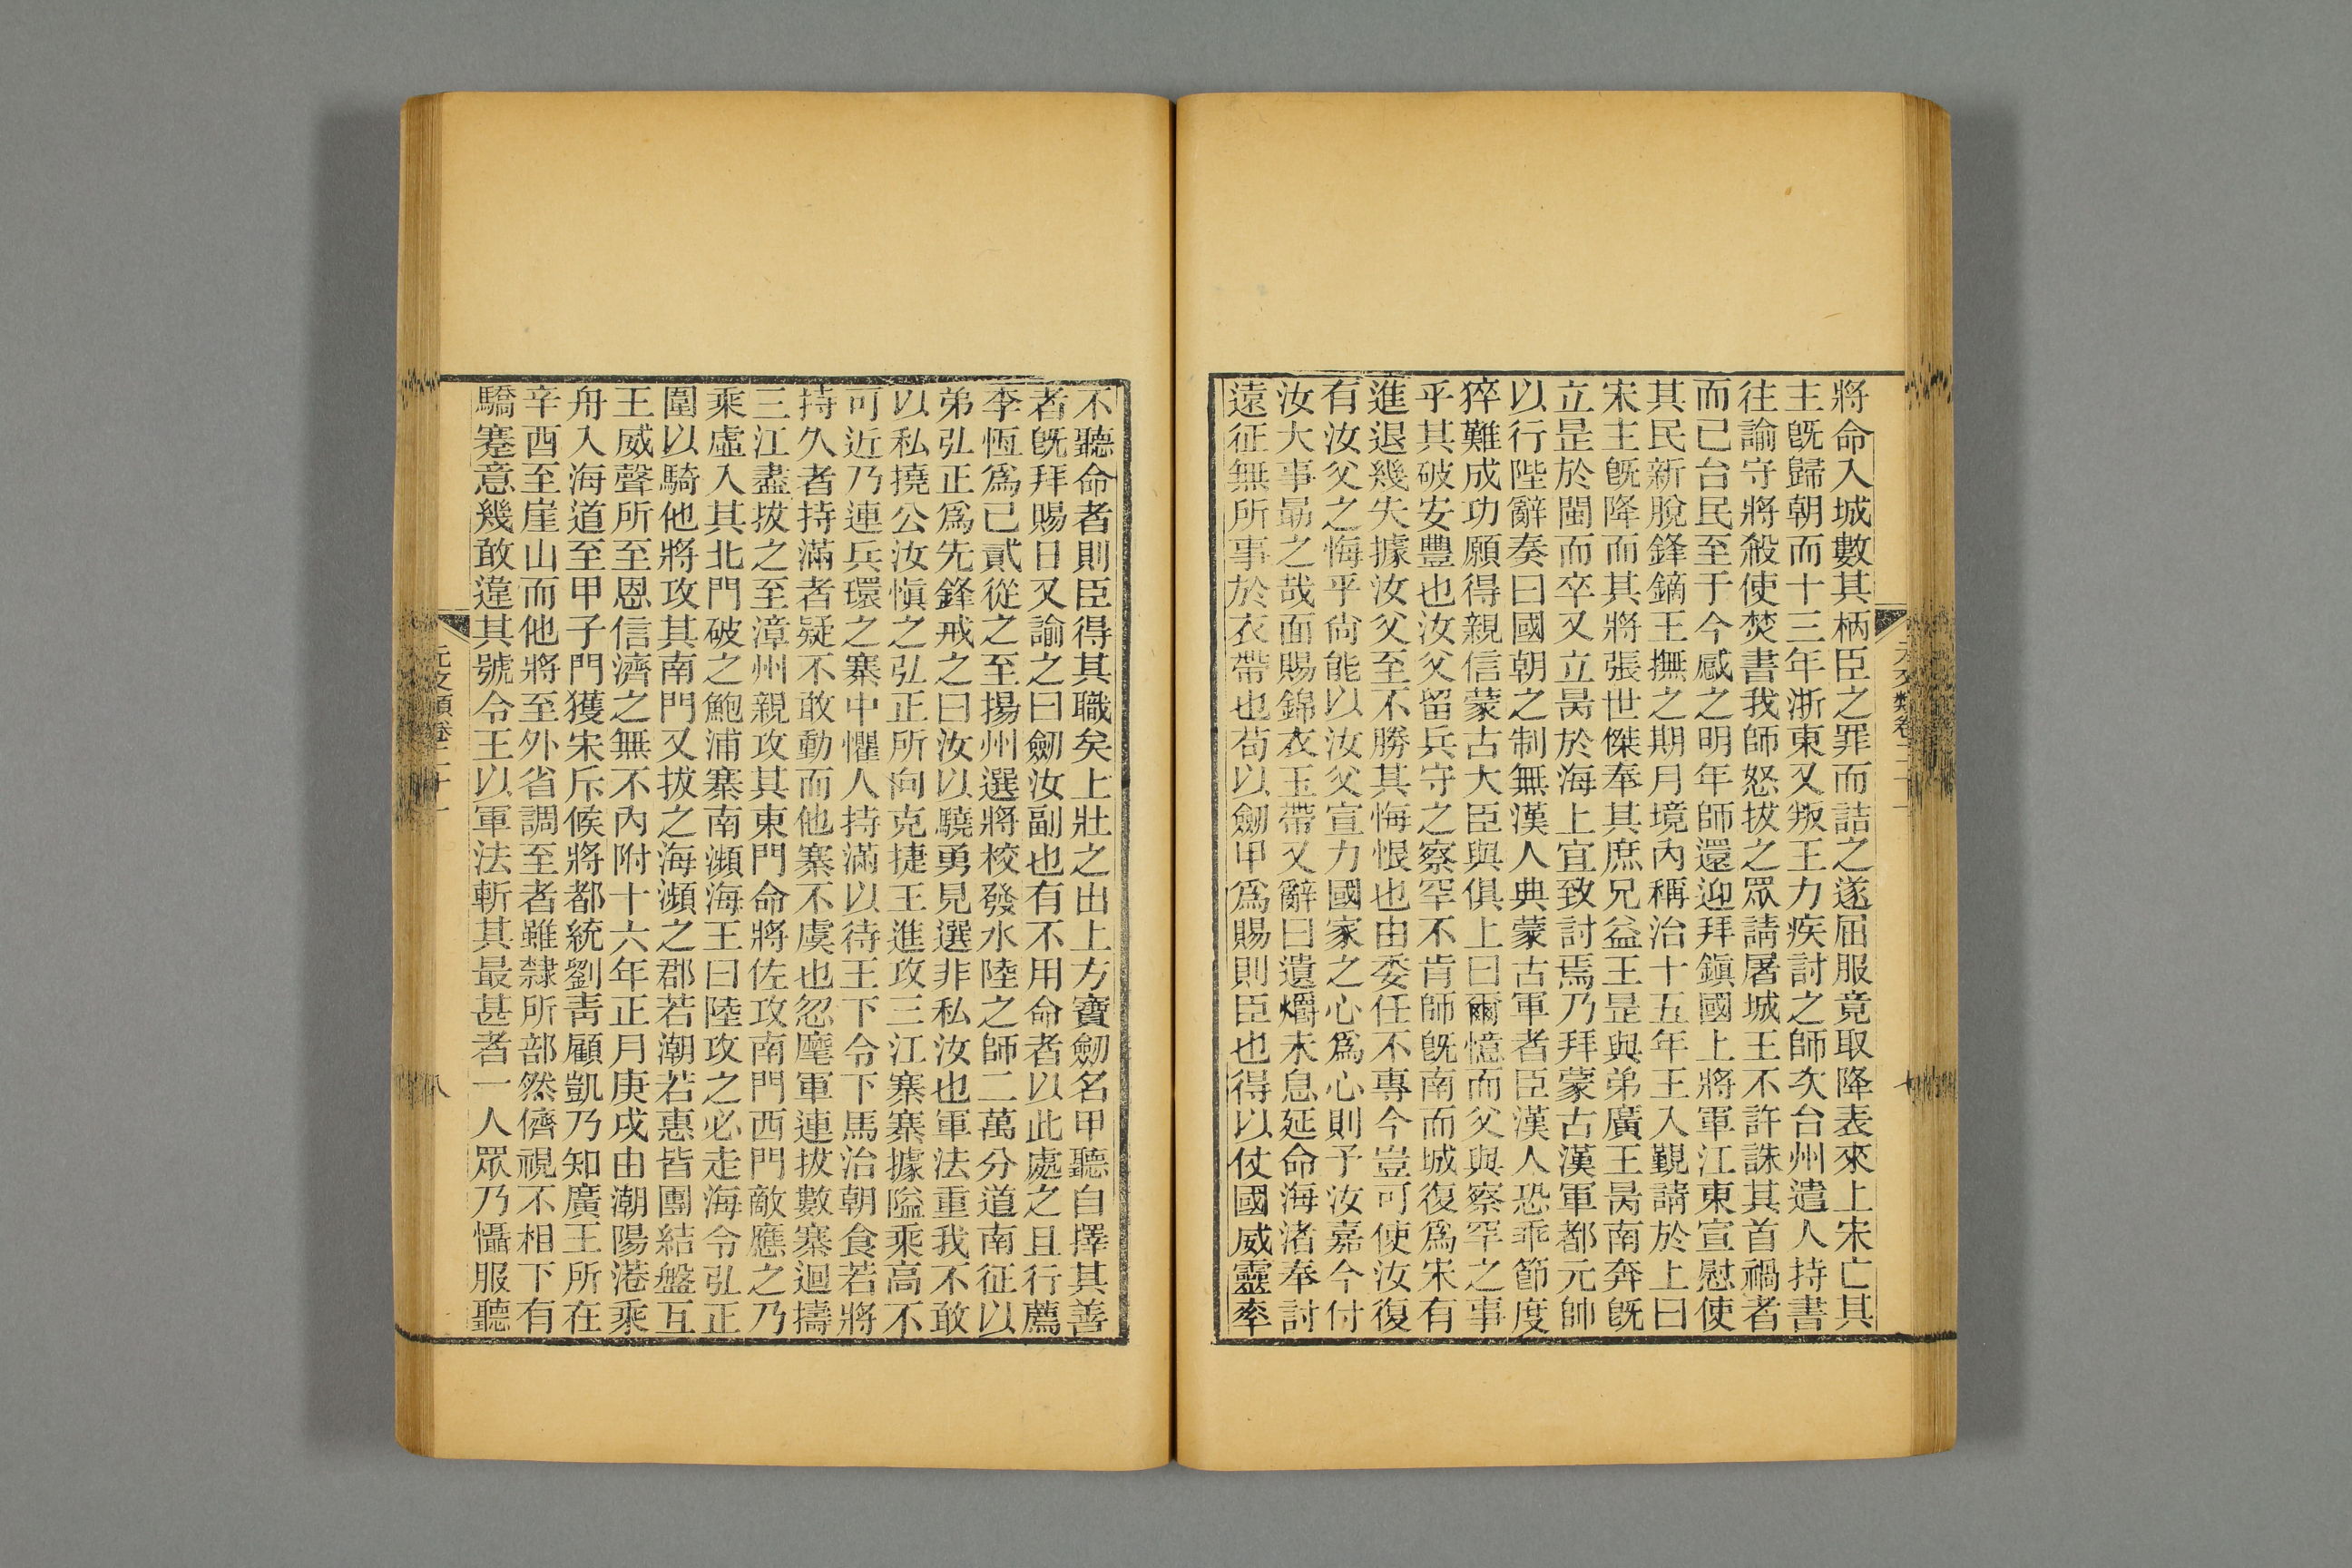 將命入城數其柄臣之罪而詰之遂屈服竟取降表來上宋亡其
主旣歸朝而十三年浙東又叛王力疾討之師次台州遣人持書
往諭守將殺使焚書我師怒拔之眾請屠城王不許誅其首禍者
而已台民至于今感之明年師還迎拜鎭國上將軍江東宣慰使
其民新脫鋒鏑王撫之期月境內稱治十五年王入覲請於上曰
宋主旣降而其將張世傑奉其庶兄益王昰與弟廣王昺南奔旣
立昰於閩而卒又立昺於海上宜致討焉乃拜蒙古漢軍都元帥
以行陛辭奏曰國朝之制無漢人典蒙古軍者臣漢人恐乖節度
猝難成功願得親信蒙古大臣與俱上曰爾憶而父與察罕之事
乎其破安豐也汝父留兵守之察罕不肯師旣南而城復爲宋有
進退幾失據汝父至不勝其悔恨也由委任不專今豈可使汝復
有汝父之悔乎尙能以汝父宣力國家之心爲心則予汝嘉今付
汝大事勗之哉面賜錦衣玉帶又辭曰遺爝未息延命海渚奉討
遠征無所事於衣帶也苟以劒甲爲賜則臣也得以仗國威靈率
不聽命者則臣得其職矣上壯之出上方寶劒名甲聽自擇其善
者旣拜賜日又諭之曰劒汝副也有不用命者以此處之且行薦
李恆爲己貳從之至揚州選將校發水陸之師二萬分道南征以
弟弘正爲先鋒戒之曰汝以驍勇見選非私汝也軍法重我不敢
以私撓公汝愼之弘正所向克捷王進攻三江寨寨據隘乘高不
可近乃連兵環之寨中懼人持滿以待王下令下馬治朝食若將
持久者持滿者疑不敢動而他寨不虞也忽麾軍連拔數寨迴擣
三江盡拔之至漳州親攻其東門命將佐攻南門西門敵應之乃
乘虛入其北門破之鮑浦寨南瀕海王曰陸攻之必走海令弘正
圍以騎他將攻其南門又拔之海瀕之郡若潮若惠皆團結盤互
王威聲所至恩信濟之無不內附十六年正月庚戌由潮陽港乘
舟入海道至甲子門獲宋斥候將都統劉靑顧凱乃知廣王所在
辛酉至崖山而他將至外省調至者雖隸所部然儕視不相下有
驕蹇意幾敢違其號令王以軍法斬其最甚者一人眾乃懾服聽
元文類卷二十一
八